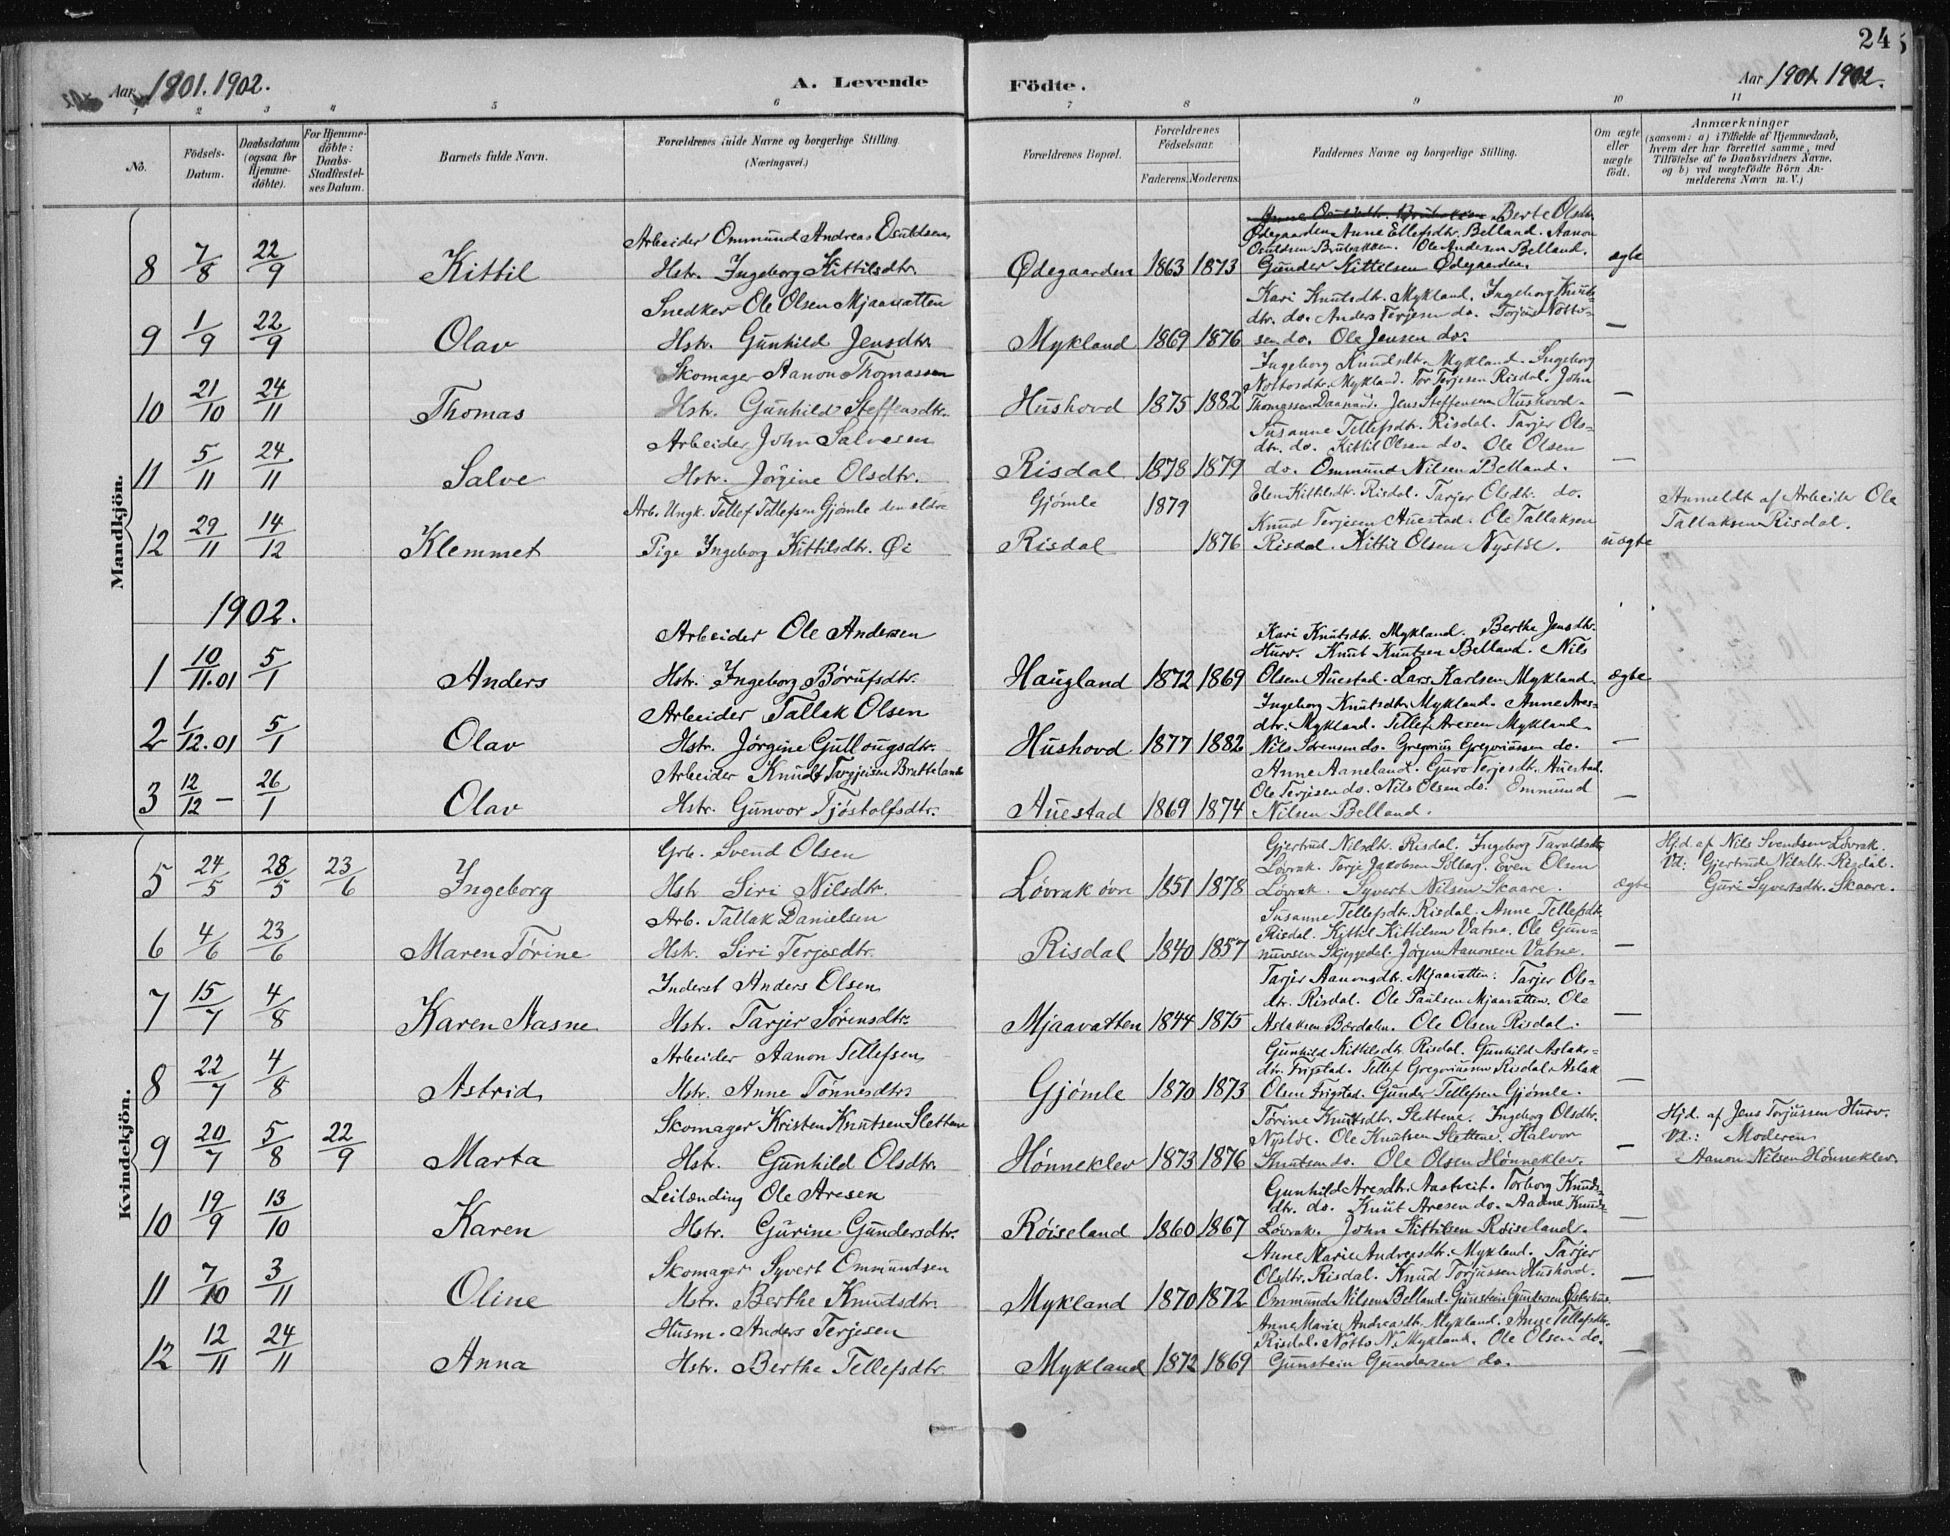 24
Aar 1901. 1902.
A. Levende
Födte.
Aar 1901. 1902.
1 2 3 4 5 6 7 8 9 10 11
No.
Födsels-Datum.
Daabsdatum (ogsaa for Hjemme-döbte).
For Hjemme-döbte: Daabs-Stadfæstel-ses Datum.
Barnets fulde Navn.
Forældrenes fulde Navne og borgerlige Stilling (Næringsvei.)
Forældrenes Bopæl.
Forældrenes Födselsaar.
Faderens. Moderens.
Faddernes Navne og borgerlige Stilling.
Om ægte eller uægte födt.
Anmærkninger
(saasom: a) i Tilfælde af Hjemmedaab, hvem der har forrettet samme, med Tilföielse af to Daabsvidners Navne, og b) ved uægtefödte Börn An-melderens Navn m. V.)
Mandkjön.
Arbeider Ommund Andreas Osuldsen
Berte Olsdtr.
Ødegaarden Anne Ellefsdtr. Belland. Aanon
Osuldsen Brubakken. Ole Andersen Belland.
8 7/8 22/9 Kittil Hstr. Ingeborg Kittilsdtr. Ødegaarden 1863 1873 Gunder Kittelsen Ødegaarden. ægte
Snedker Ole Olsen Mjaavatten
Kari Knutsdtr. Mykland. Ingeborg Knuts-
dtr. do. Anders Terjesen do. Torjus Notto-
9 1/9 22/9 Olav Hstr. Gunhild Jensdtr. Mykland 1869 1876 sen do. Ole Jensen do. —
Skomager Aanon Thomassen
Ingeborg Knudsdtr. Mykland. Ingeborg
Nottosdtr. Mykland. Tor Terjesen Risdal. John
10 21/10 24/11 Thomas Hstr. Gunhild Steffensdtr. Hushovd 1875 1882 Thomassen Jens Steffensen Hushovd. —
Arbeider John Salvesen
Susanne Tellefsdtr. Risdal. Tarjer Ols-
dtr. do. Kittil Olsen do. Ole Olsen
11 5/11 24/11 Salve Hstr. Jörgine Olsdtr. Risdal 1878 1879 do. Ommund Nilsen Belland. —
Arb. Ungk. Tellef Tellefsen Gjömle den eldre Gjömle 1879 Elen Kittilsdtr. Risdal. Tarjer Olsdtr. do. Anmeldt af Arbeider Ole
Knud Terjesen Auestad. Ole Tallaksen Tallaksen Risdal.
12 29/11 14/12 Klemmet Pige Ingeborg Kittilsdtr. Øi Risdal 1876 Risdal. Kittil Olsen Nystöl. uægte
1902.
Arbeider Ole Andersen
Kari Knutsdtr. Mykland. Berthe Jensdtr.
Hurv. Knut Knutsen Belland. Nils
1 10/11.01 5/1 Anders Hstr. Ingeborg Börufsdtr. Haugland 1872 1869 Olsen Auestad. Lars Karlsen Mykland. ægte
Arbeider Tallak Olsen
Ingeborg Knutsdtr. Mykland. Anne Ares-
dtr. Mykland. Tellef Aresen Mykland.
2 1/12.01 5/1 Olav Hstr. Jörgine Gullougsdtr. Hushovd 1877 1882 Nils Sörensen do. Gregorius Gregoriussen do. —
Arbeider Knudt Targjeisen Bratteland
Anne Aaneland. Guro Terjesdtr. Auestad.
Ole Terjesen do. Nils Olsen do. Emmund
3 12/12 — 26/1 Olav Hstr. Gunvor Tjöstolfsdtr. Auestad 1869 1874 Nilsen Belland. —
Kvindekjön.
Grb. Svend Olsen
Gjertrud Nilsdtr. Risdal. Ingeborg Taraldsdtr.
Lövrak. Terje Jakobsen Solberg. Even Olsen
Hjd. af Nils Svendsen Lövrak.
Vd: Gjertrude Nilsdtr. Risdal.
5 24/5 28/5 23/6 Ingeborg Hstr Siri Nilsdtr. Lövrak övre 1851 1878 Lövrak. Syvert Nilsen Skaare. ægte Guri Syvertsdtr. Skaare.
Arb. Tallak Danielsen
Susanne Tellefsdtr. Risdal. Anne Tellefsdtr.
Risdal. Kittil Kittilsen Vatne. Ole Gun-
6 4/6 23/6 Maren Törine Hstr. Siri Terjesdtr. Risdal 1840 1857 nuvsen Skjeggedal. Jörgen Aanonsen Vatne. —
Inderst Anders Olsen
Tarjer Aanonsdtr. Mjaavatten. Tarjer Ols-
dtr. Risdal. Ole Paulsen Mjaavatten. Ole
7 15/7 4/8 Karen Aasne Hstr. Tarjer Sörensdtr. Mjaavatten 1844 1875 Aslaksen Bærdalen. Ole Olsen Risdal. —
Arbeider Aanon Tellefsen
Gunhild Kittilsdtr. Risdal. Gunhild Aslaks-
dtr. Frigstad. Tellef Gregoriussen Risdal. Aslak
8 22/7 4/8 Astrid Hstr. Anne Tönnesdtr. Gjömle 1870 1873 Olsen Frigstad. Gunder Tellefsen Gjömle. —
Skomager Kristen Knutsen Slettene
Törine Knutsdtr. Slettene. Ingeborg Olsdtr.
Nystöl. Ole Knutsen Slettene. Halvor
Hjd. af Jens Torjussen Hurv.
Vd.: Moderen
9 20/7 5/8 22/9 Marta Hstr. Gunhild Olsdtr. Hönneklev 1873 1876 Knutsen do. Ole Olsen Hönneklev. — Aanon Nilsen Hönneklev.
Leilænding Ole Aresen
Gunhild Aresdtr. Aastveit. Torborg Knuds-
dtr. do. Knut Aresen do. Aadne Knuds-
10 19/9 13/10 Karen Hstr. Gurine Gundersdtr. Röiseland 1860 1867 Lövrak. John Kittilsen Röiseland. —
Skomager Syvert Ommundsen
Anne Marie Andreasdtr. Mykland. Tarjer
Olsdtr. Risdal. Knud Torjussen Hushovd.
11 7/10 3/11 Oline Hstr. Berthe Knudsdtr. Mykland 1870 1872 Ommund Nilsen Belland. Gunstein Gundersen Österhus. —
Husm. Anders Terjesen
Anne Marie Andreasdtr. Mykland. Anne Tellefsdtr.
Risdal. Notto N. Mykland. Ole Olsen do.
12 12/11 24/11 Anna Hstr. Berthe Tellefsdtr. Mykland 1872 1869 Gunstein Gundersen do. —